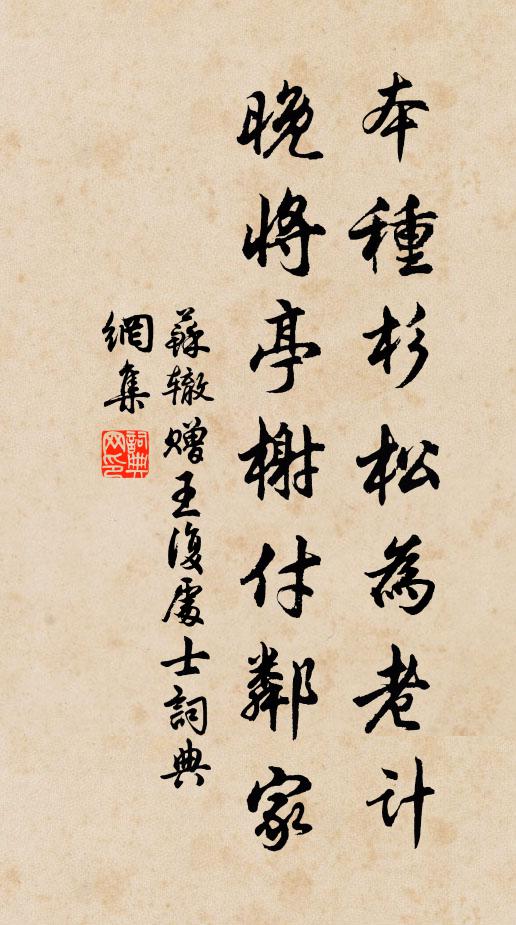 本種杉松為老計
晚將亭榭付鄰家
蘇辙赠王復處士詞典
網集
詞典
网印